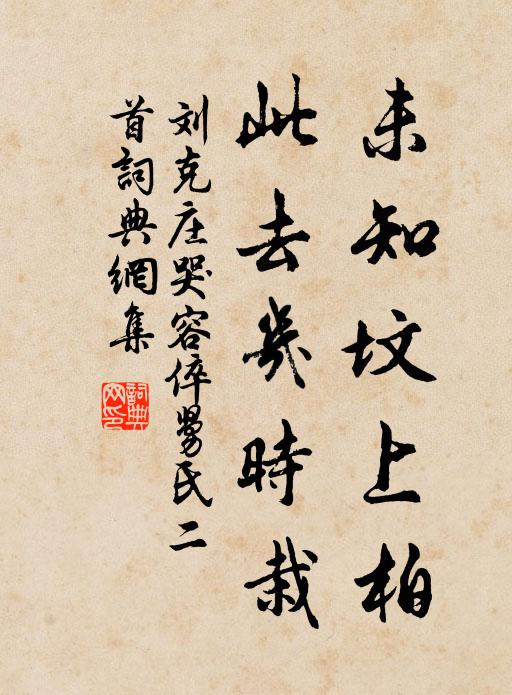 未知坟上柏
此去幾時栽
刘克庄哭容倅舅氏二
首詞典網集
詞典
网印